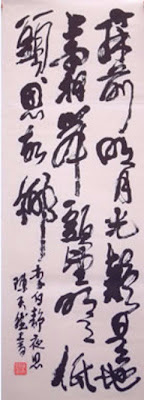 床前明月光疑是地
上霜舉頭望明月低
頭思故鄉
李白静夜思